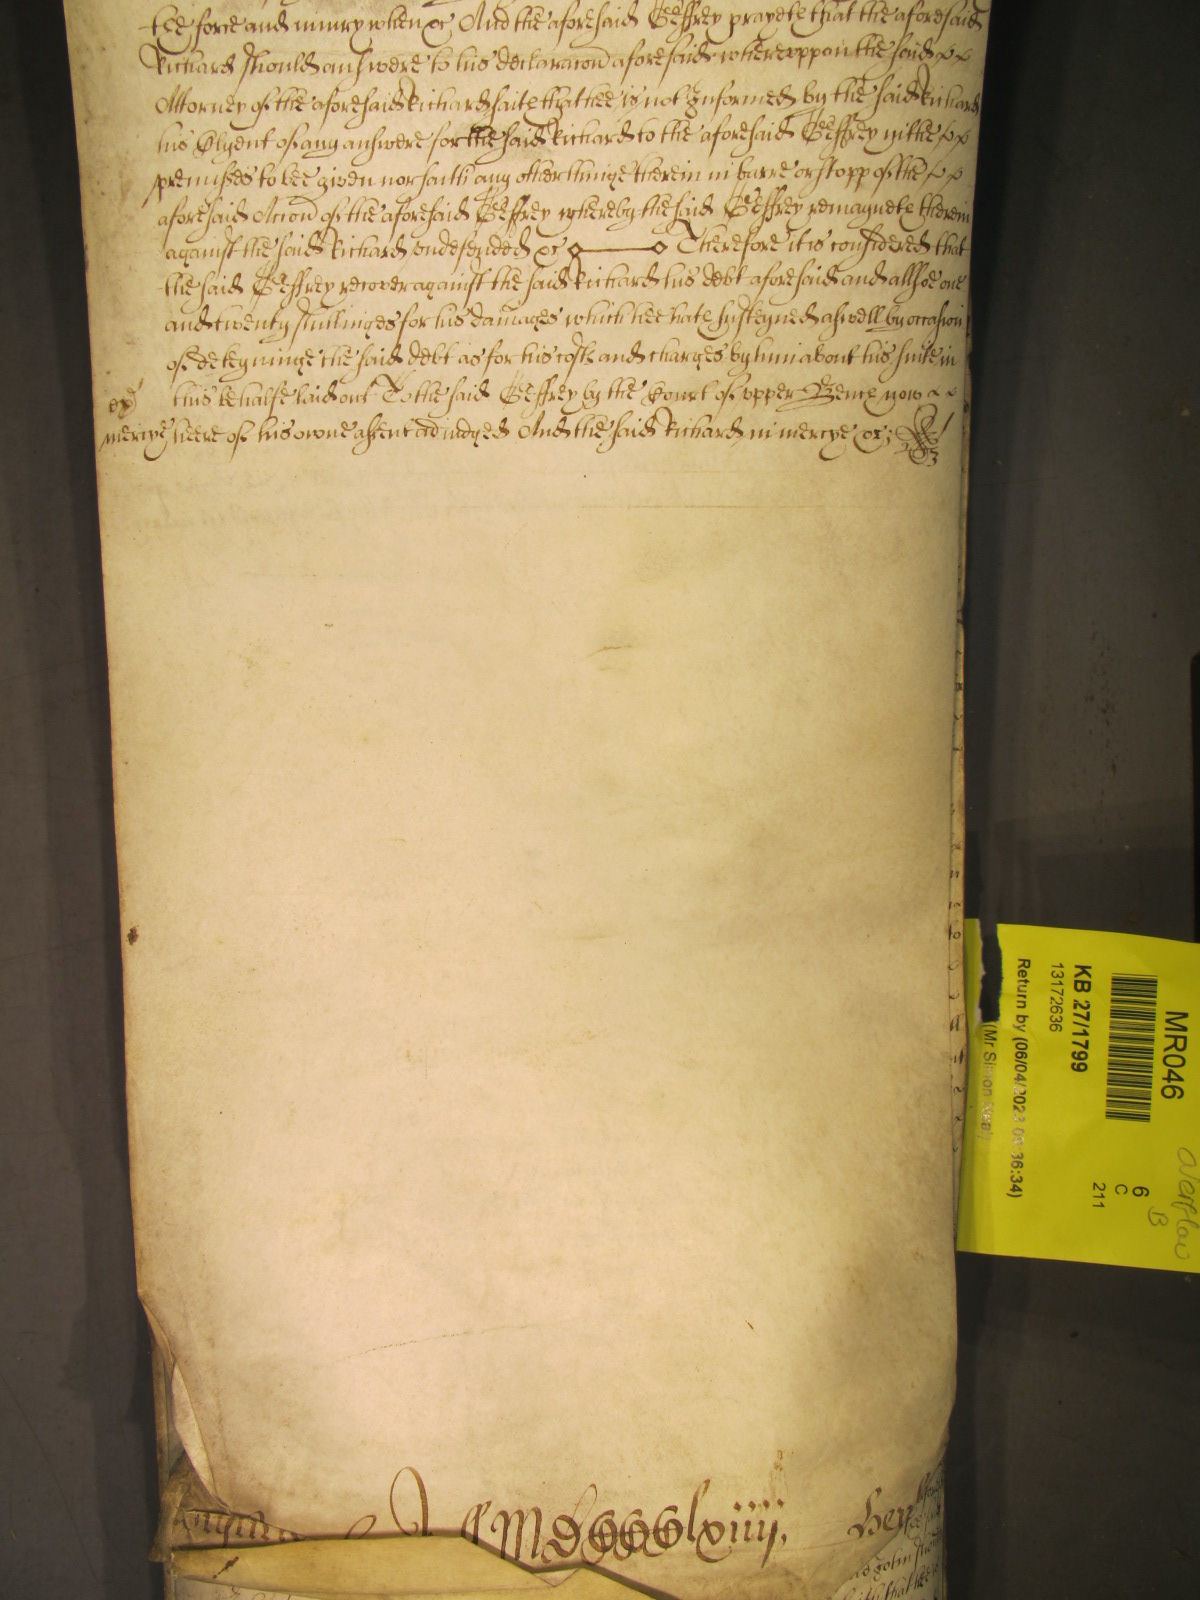 the force and iniury when &c And the aforesaid Geffrey prayeth that the aforesaid
Richard should answere to his declaracon aforesaid whereuppon the said
Attorney of the aforesaid Richard saith that hee is not informed by the said Richard
his Clyent of any answere for the said Richard to the aforesaid Geffrey in the
premisses to bee given nor saith any other thinge therein in barre or stopp of the
aforesaid Accon of the aforesaid Geffrey whereby the said Geffrey remayneth therein
against the said Richard undefended &c Therefore it is considered that
the said Geffrey recover against the said Richard his debt aforesaid and allsoe one
and twenty shillinges for his damages which hee hath susteyned aswell by occasion
of deteyninge the said debt as for his costs and charges by him about his suite in
this behalfe laid out To the said Geffrey by the Court of upper Bench now
mercye heere of his owne assent adiudged And the said Richard in mercye &c;
MDCCClxiiij.
MR046
KB 27/1799
13172636
Return by (06/04/2023 09:36:34)
(Mr Simon Neal)
6
C
211
overflow
B